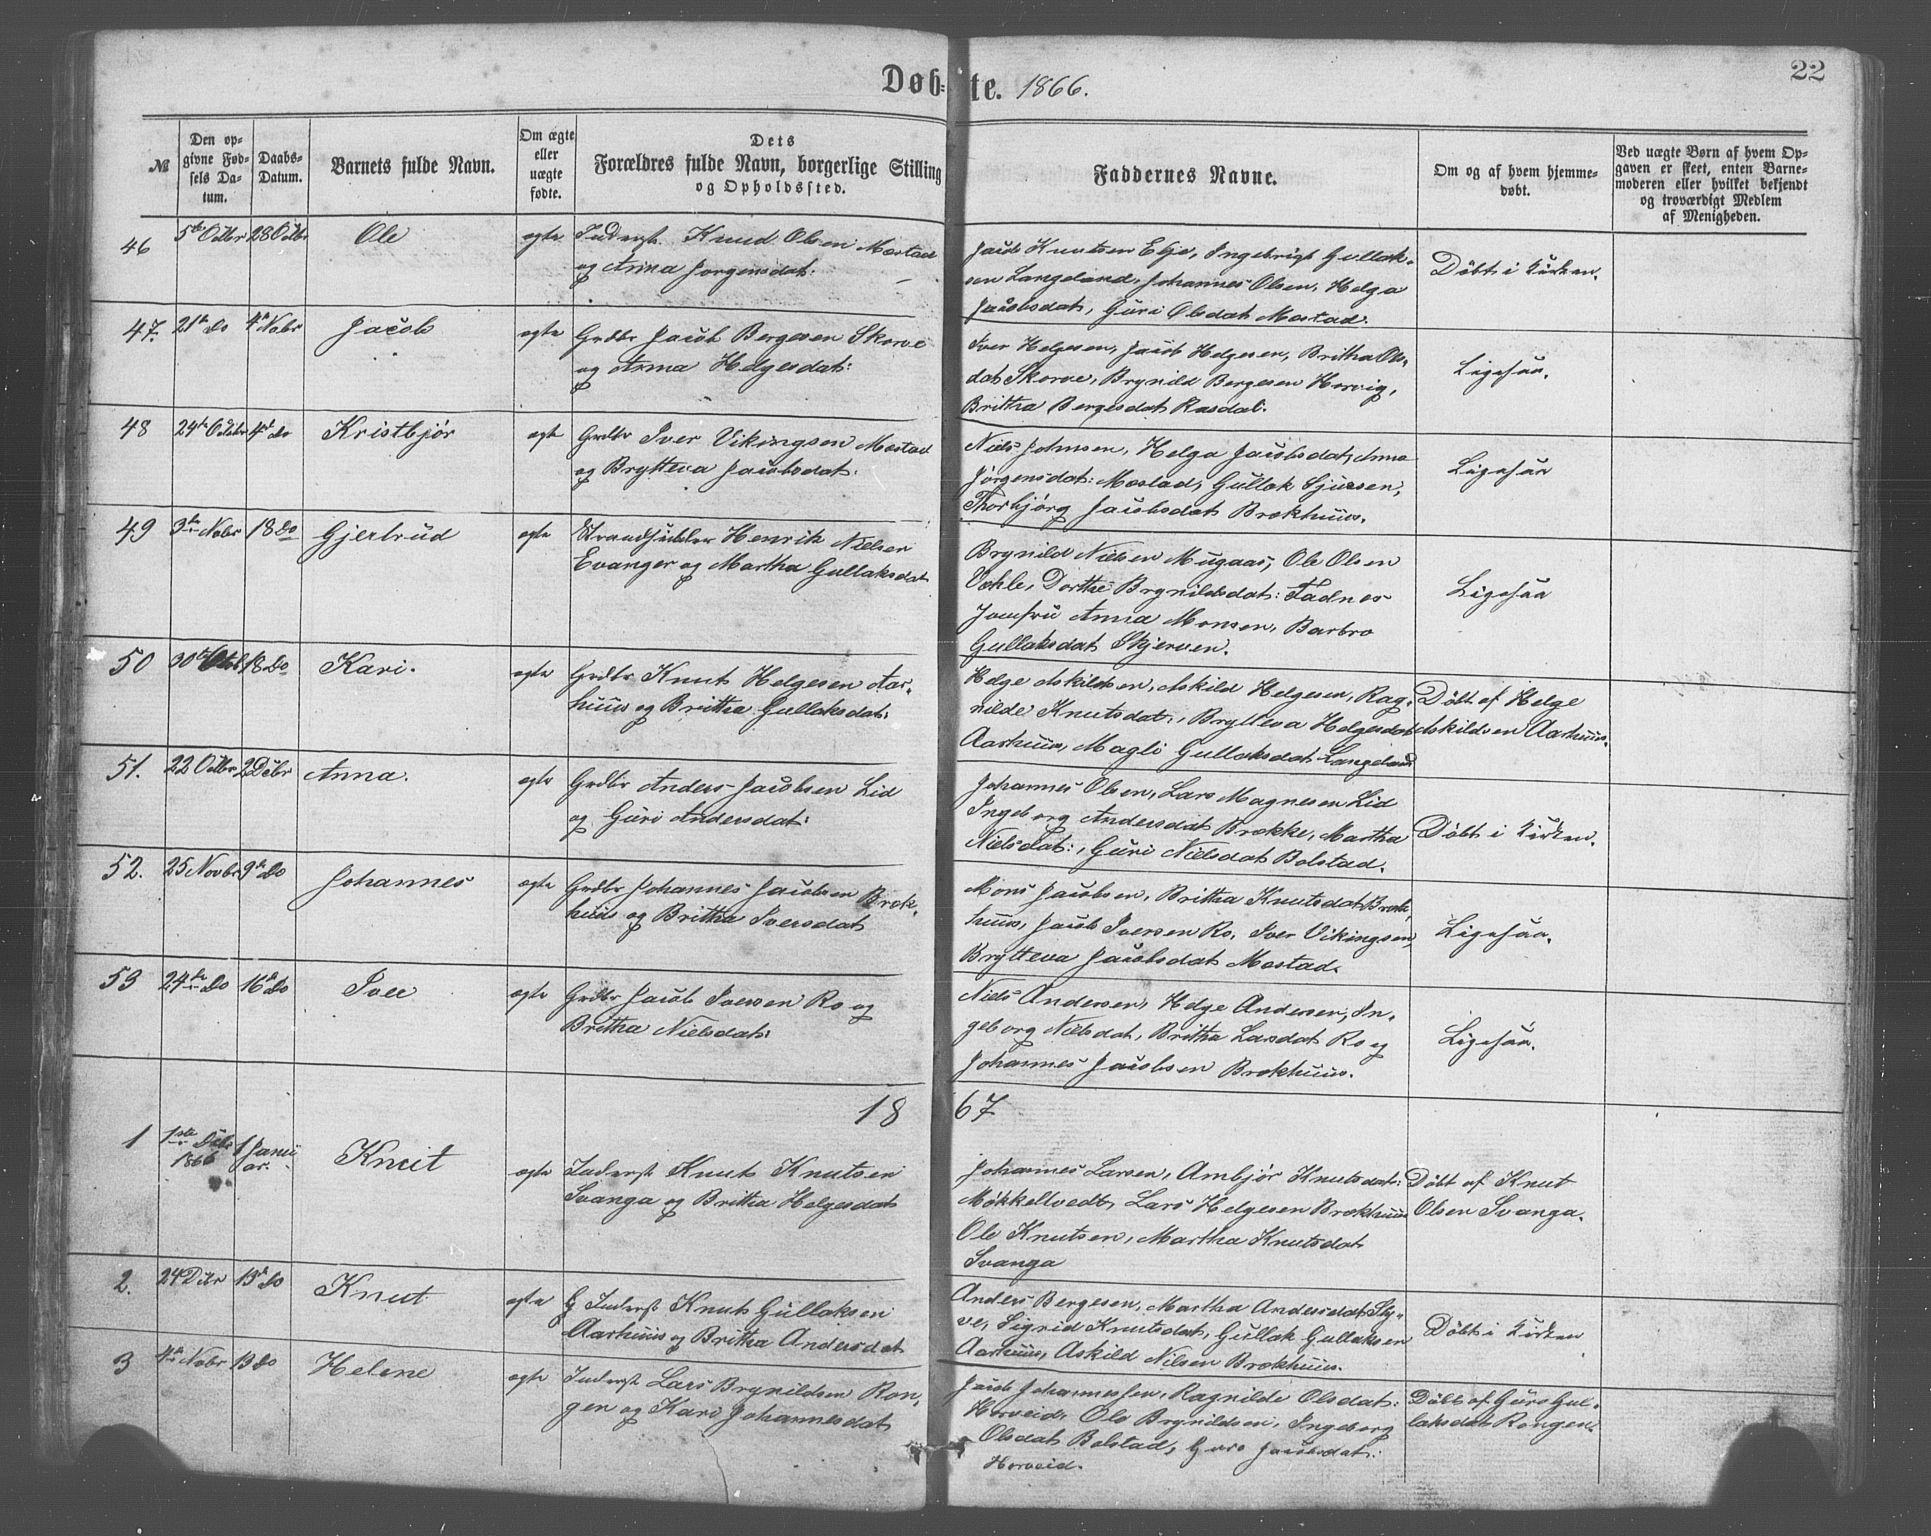 Døb- te. 1866.
22
№
Den op-
givne Fød-
sels Da-
tum.
Daabs-
Datum.
Barnets fulde Navn.
Om ægte
eller
uægte
fødte.
Dets
Forældres fulde Navn, borgerlige Stilling
og Opholdssted.
Faddernes Navne.
Om og af hvem hjemme-
døbt.
Ved uægte Børn af hvem Op-
gaven er skeet, enten Barne-
moderen eller hvilket bekjendt
og troværdigt Medlem
af Menigheden.
46
5te Octbr
28 Octbr
Ole
ægte
Inderst. Knud Olsen Mæstad
og Anna Jørgensdat:
Jacob Knutsen Elje, Ingebrigt Gullak-
sen Langeland, Johannes Olsen, Helga
Jacobsdat, Guri Olsdat Mæstad.
Døbt i Kirken.
47.
21de do
4de Nobr
Jacob
ægte
Grdbr Jacob Bergesen Skorve
og Anna Helgesdat:
Iver Helgesen, Jacob Helgesen, Britha Ols-
dat Skorve, Brynild Bergesen Horvig,
Britha Bergesdat Rasdal.
Ligesaa.
48
24de Octbr
4de do
Kristbjør
ægte
Grdbr Iver Vikingsen Mæstad
og Brytteva Jacobsdat:
Niels Johnsen, Helga Jacobsdat, Anna
Jørgensdat: Mæstad, Gullak Sjursen,
Thorbjørg Jacobsdat Brækhuus.
Ligesaa
49
3de Nobr
18 do
Gjertrud
ægte
Strandsidder Henrik Nielsen
Evanger og Martha Gullaksdat
Brynild Nielsen Mugaas, Ole Olsen
Væhle, Dorthe Brynildsdat: Fadnes
Jomfru Anna Monsen, Barbro
Gullaksdat Skjerven.
Ligesaa
50
30te Octb
18 do
Kari.
ægte
Grdbr Knut Helgesen Aar-
huus og Britha Gullaksdat:
Helge Askildsen, Askild Helgesen, Rag-
nilde Knutsdat:, Brytteva Helgesdat
Aarhuus, Magli Gullaksdat Langeland
Døbt af Helge
Askildsen Aarhuus.
51.
22 Octbr
2 Decbr
Anna.
ægte
Grdbr Anders Jacobsen Lid
og Guri Andersdat:
Johannes Olsen, Lars Magnesen Lid
Ingeborg Andersdat Brække, Martha
Nielsdat:, Guri Nielsdat Bolstad.
Døbt i Kirken.
52.
25 Novbr
9de do
Johannes
ægte
Grdbr Johannes Jacobsen Bræk-
huus og Britha Iversdat
Mons Jacobsen, Britha Knutsdat Bræk-
huus, Jacob Iversen Ro, Iver Vikingsen,
Brytteva Jacobsdat Mæstad.
Ligesaa.
53
24de do
16 do
Iver
ægte
Grdbr Jacob Iversen Ro og
Britha Nielsdat:
Niels Andersen, Helge Andersen, In-
geborg Nielsdat, Britha Larsdat Ro og
Johannes Jacobsen Brækhuus.
Ligesaa.
18 67
1
1ste Decbr
1866
1 Janu
ar.
Knut
ægte
Inderst Knut Knutsen
Svanga og Britha Helgesdat
Johannes Larsen, Ambjør Knutsdat:
Møkkeltvedt, Lars Helgesen Brækhuus
Ole Knutsen, Martha Knutsdat
Svanga
Døbt af Knut
Olsen Svanga.
2.
24 Decbr
13de do
Knut
ægte
G Inderst Knut Gullaksen
Aarhuus og Britha Andersdat
Anders Bergesen, Martha Andersdat Sty-
ve, Sigrid Knutsdat, Gullak Gullaksen
Aarhuus, Askild Nilsen Brækhuus.
Døbt i Kirken
3
4de Nobr
13 do
Helene
ægte
Inderst Lars Brynildsen Ron-
gen og Kari Johannesdat
Jacob Johannessen, Ragnilde Olsdat:
Horveid, Ole Brynildsen, Ingeborg
Olsdat Bolstad, Guro Jacobsdat:
Horveid.
Døbt af Guro Gul-
laksdat Rongen.